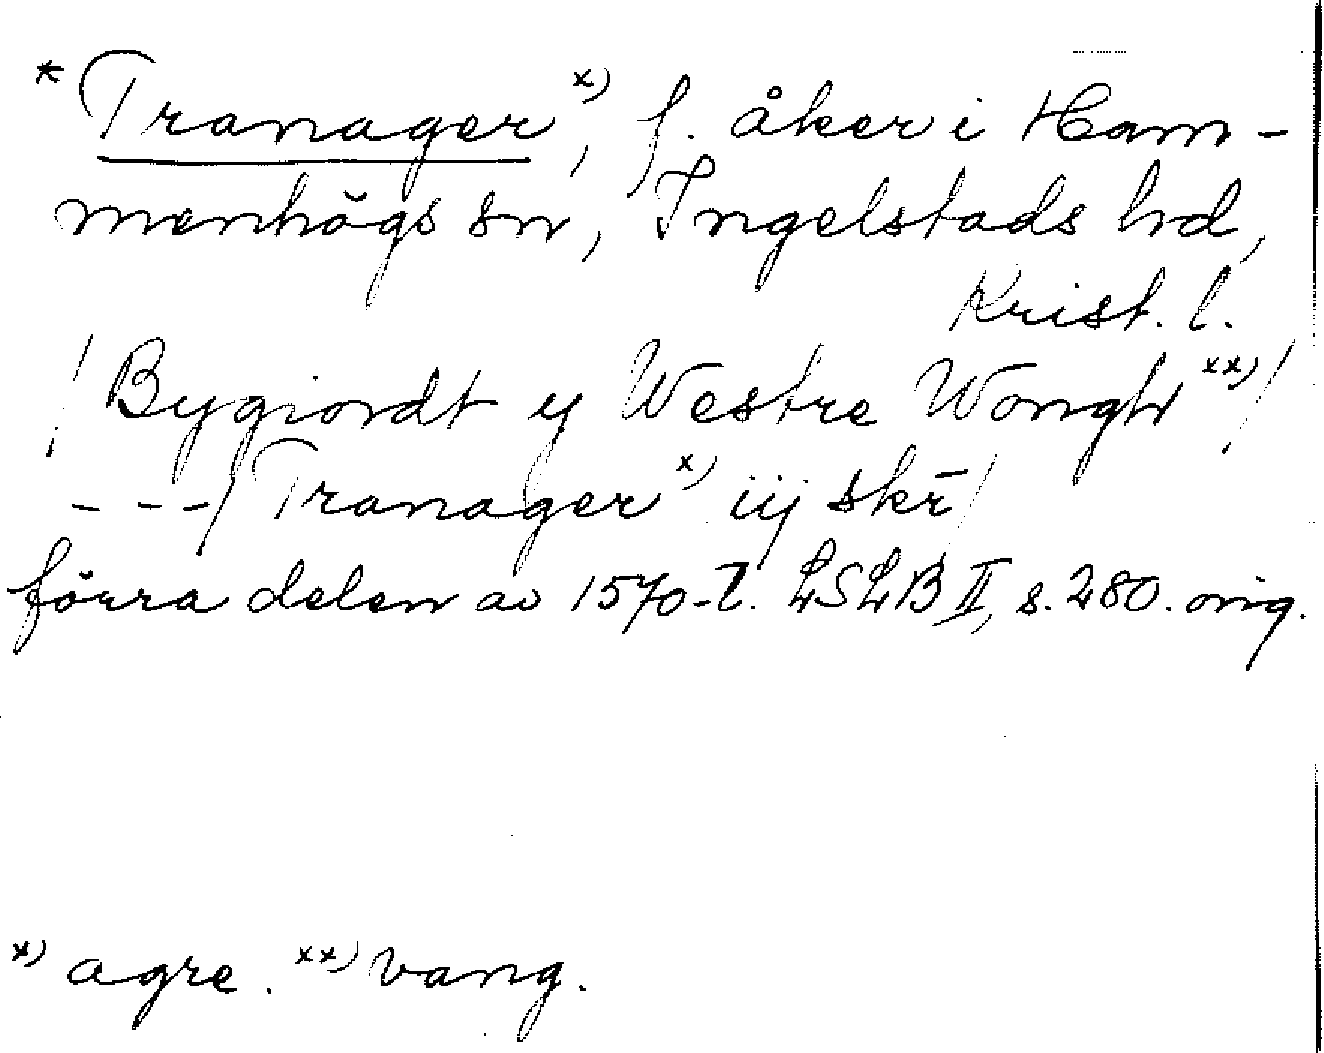 * Tranager x), f. åker i Ham-
menhögs sn, Ingelstads hd,
Krist. l.
/Bygiordt y Westre Wongh xx)/
- - -/Tranager x) iij skr̄/
förra delen av 1570-t. LSLB II, s. 280. orig.
x) agre. xx) vang.